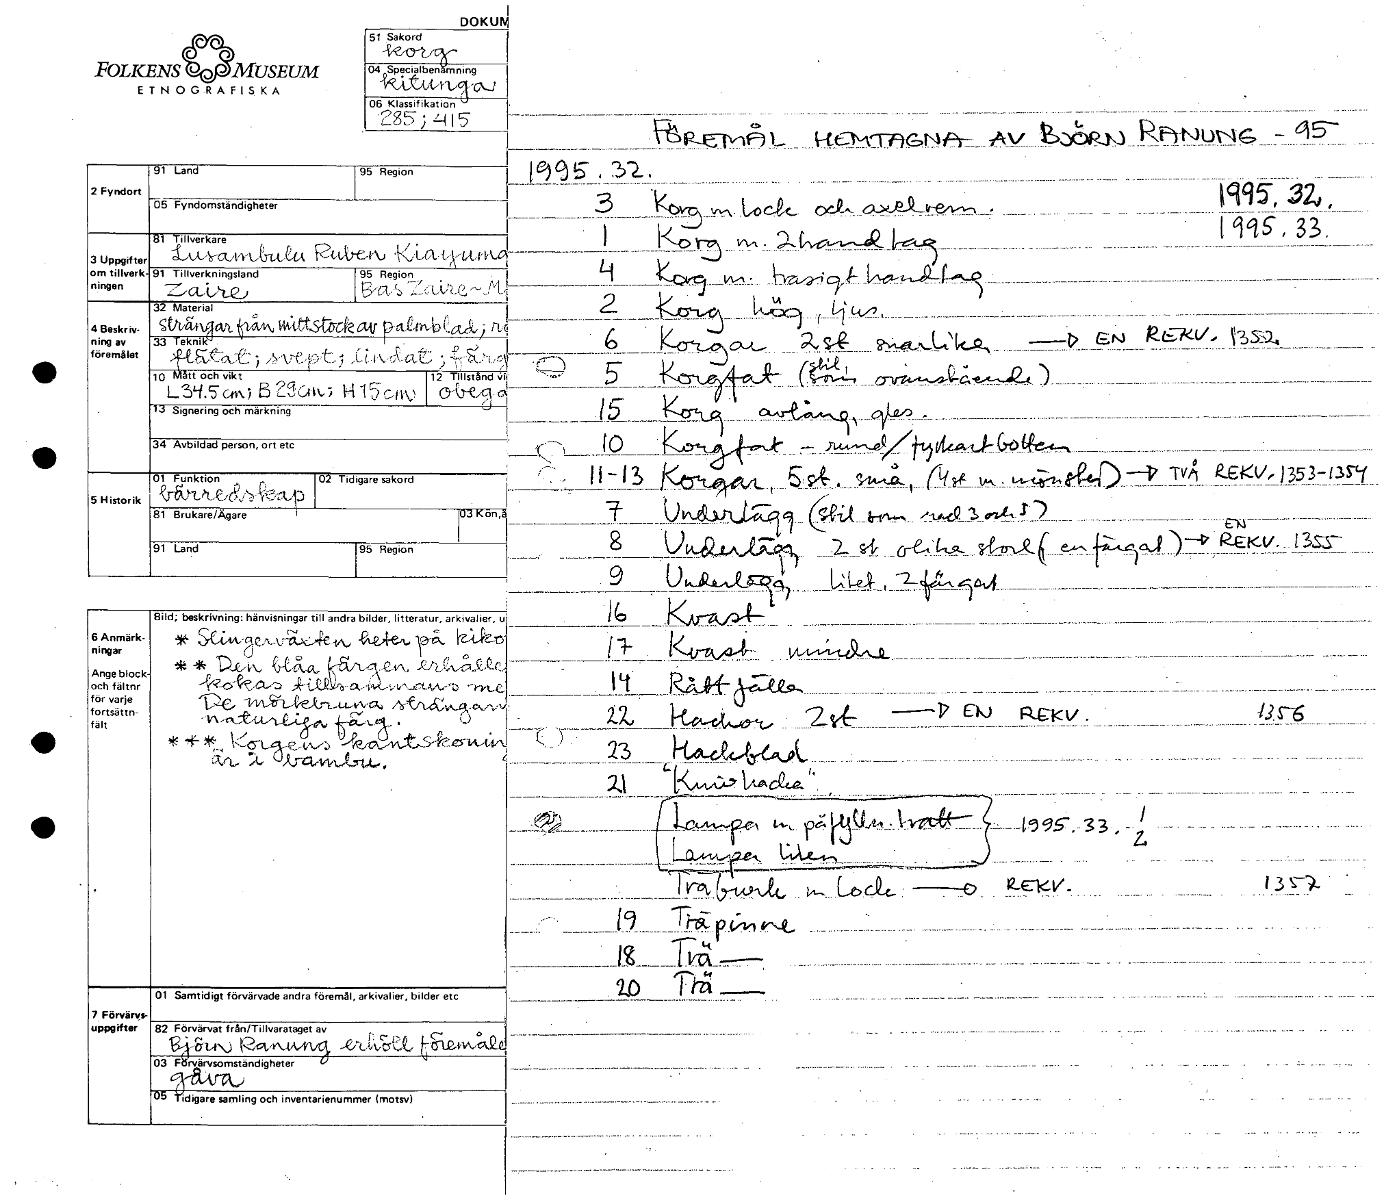 DOKUM
FOLKENS MUSEUM
ETNOGRAFISKA
51 Sakord
korg
04 Specialbenämning
kitunga
06 Klassifikation
285; 415
2 Fyndort
91 Land
95 Region
05 Fyndomständigheter
3 Uppgifter om tillverk-ningen
81 Tillverkare
Lusambulu Ruben Kiayuma
91 Tillverkningsland
Zaire
95 Region
Bas Zaire-M
4 Beskriv-ning av föremålet
32 Material
strängar från mittstock av palmblad; r
33 Teknik
flätat; svept; lindat; färg
10 Mått och vikt
L 34.5 cm; B 29 cm; H 15 cm
12 Tillstånd vi
obega
13 Signering och märkning
34 Avbildad person, ort etc
5 Historik
01 Funktion
bärredskap
02 Tidigare sakord
81 Brukare/Ägare
03 Kön,å
91 Land
95 Region
6 Anmärk-ningar
Ange block- och fältnr för varje fortsättn-fält
Bild; beskrivning: hänvisningar till andra bilder, litteratur, arkivalier, u
* Slingerväxten heter på kiko
** Den blåa färgen erhålle
kokas tillsammans me
De mörkbruna strängar
naturliga färg.
*** Korgens kantskonin
är i bambu.
7 Förvärvs-uppgifter
01 Samtidigt förvärvade andra föremål, arkivalier, bilder etc
82 Förvärvat från/Tillvarataget av
Björn Ranung erhöll föremåle
03 Förvärvsomständigheter
gåva
05 Tidigare samling och inventarienummer (motsv)
FÖREMÅL HEMTAGNA AV BJÖRN RANUNG - 95
1995.32.
1995.32.
1995.33.
3 Korg m lock och axelrem.
1 Korg m. 2 handtag
4 Korg m. trasigt handtag
2 Korg hög, ljus.
6 Korgar 2 st snarlika → EN REKV. 1352
5 Korgfat (stil som ovanstående)
15 Korg avlång, gles.
10 Korgfat - rund/fyrkant botten
11-13 Korgar, 5 st. små, (4 st m. mönster) → TVÅ REKV. 1353-1354
7 Underlägg (stil som rad 3 och 5)
8 Underlägg 2 st olika storl (en färgat) → EN REKV. 1355
9 Underlägg, litet, 2 färgat
16 Kvast
17 Kvast mindre
14 Råttfälla
22 Hackor 2 st → EN REKV. 1356
23 Hackblad
21 "Knivhacka"
Lampa m påfylln. tratt } 1995.33. 1
Lampa liten 2
Träburk m lock → REKV. 1357
19 Träpinne
18 Trä —
20 Trä —